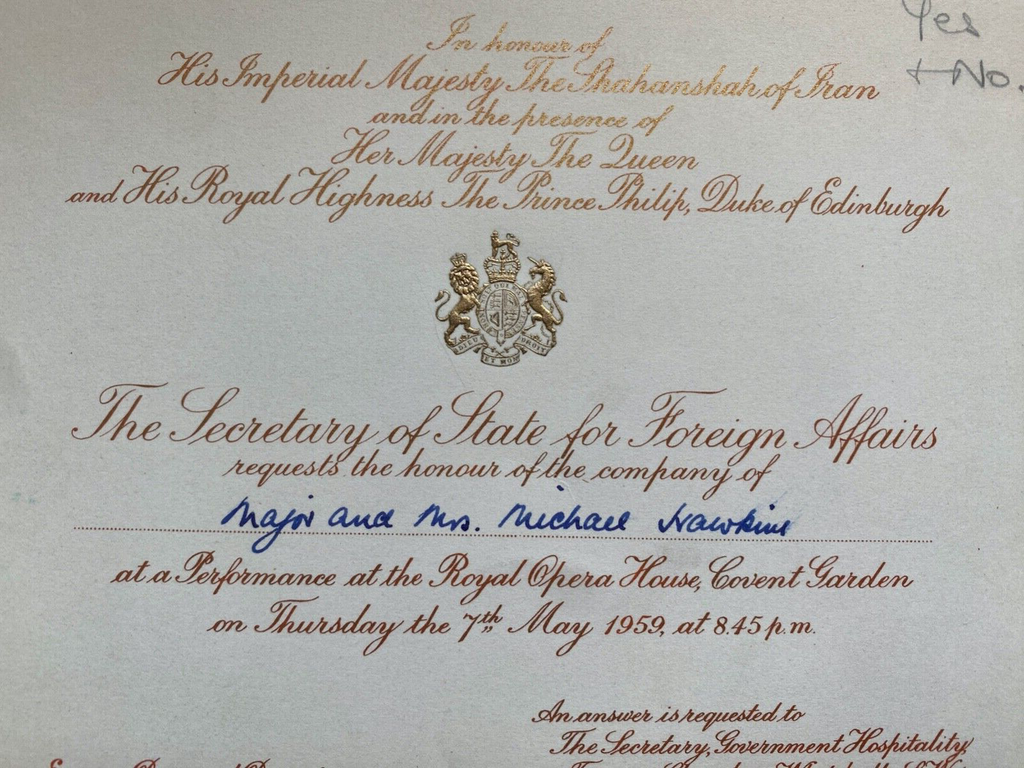 Yes
+ No.
In honour of
His Imperial Majesty The Shahanshah of Iran
and in the presence of
Her Majesty The Queen
and His Royal Highness The Prince Philip, Duke of Edinburgh
DIEU ET MON DROIT
The Secretary of State for Foreign Affairs
requests the honour of the company of
Major and Mrs. Michael Hawkins
at a Performance at the Royal Opera House, Covent Garden
on Thursday the 7th May 1959, at 8.45 p.m.
An answer is requested to
The Secretary, Government Hospitality